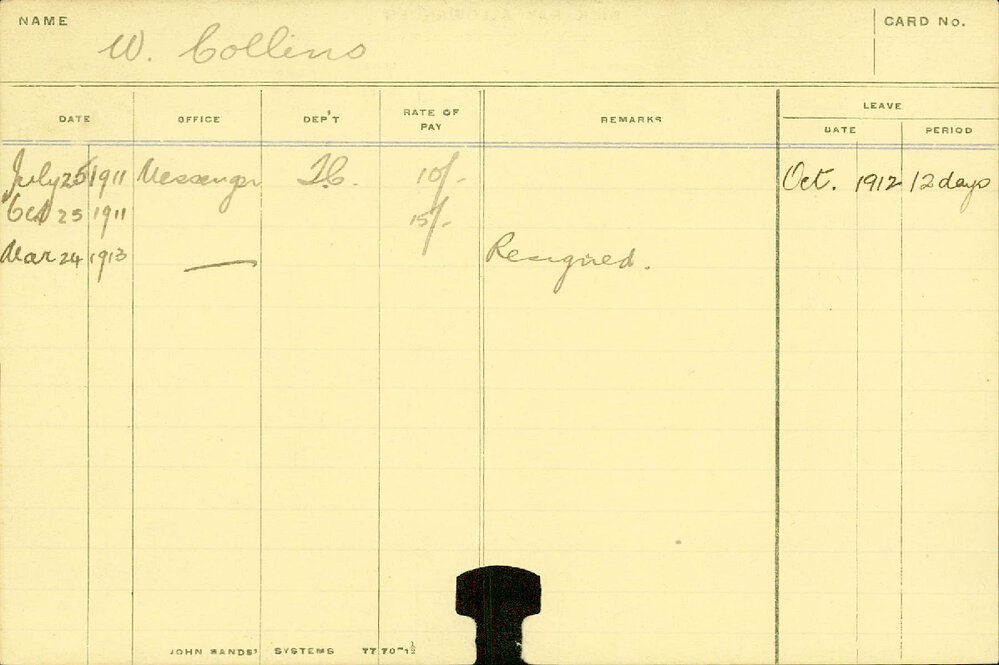 NAME W. Collins CARD No.
DATE OFFICE DEP'T RATE OF PAY REMARKS LEAVE
DATE PERIOD
July 25 1911 Messenger T.C. 10/- Oct. 1912 12 days
Oct 25 1911 15/-
Mar 24 1913 — Resigned.
JOHN SANDS' SYSTEMS 7770